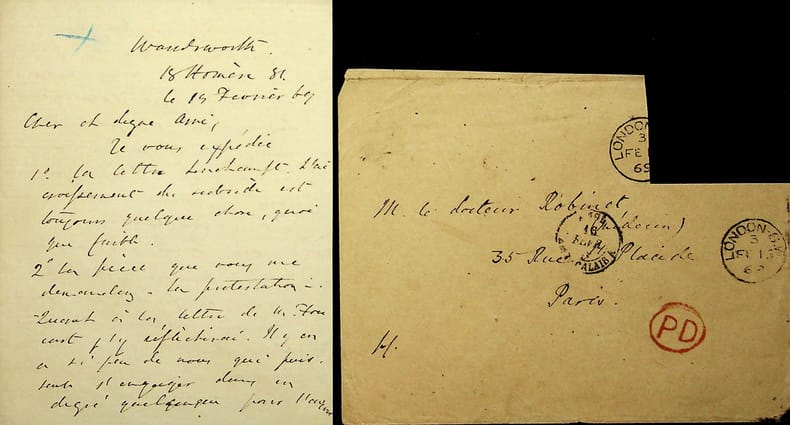 Wandsworth.
18 Homère St.
le 15 Fevrier 69
Cher et digne Ami,
Je vous expédie
1º la lettre Lonchampt. L'ac
croissement du subside est
toujours quelque chose, quoi
que faible.
2º la pièce que vous me
demandez - la protestation -
Quant à la lettre de M. Fou
cart j'y réfléchirai. Il y en
a si peu de nous qui puis-
sent s'engager dans un
degré quelconque pour l'
M. le docteur Robinet
(médecin)
35 Rue Placide
Paris.
LONDON
3
FE
69
16
FEVR
CALAIS
LONDON-S.W
3
FE 15
69
PD